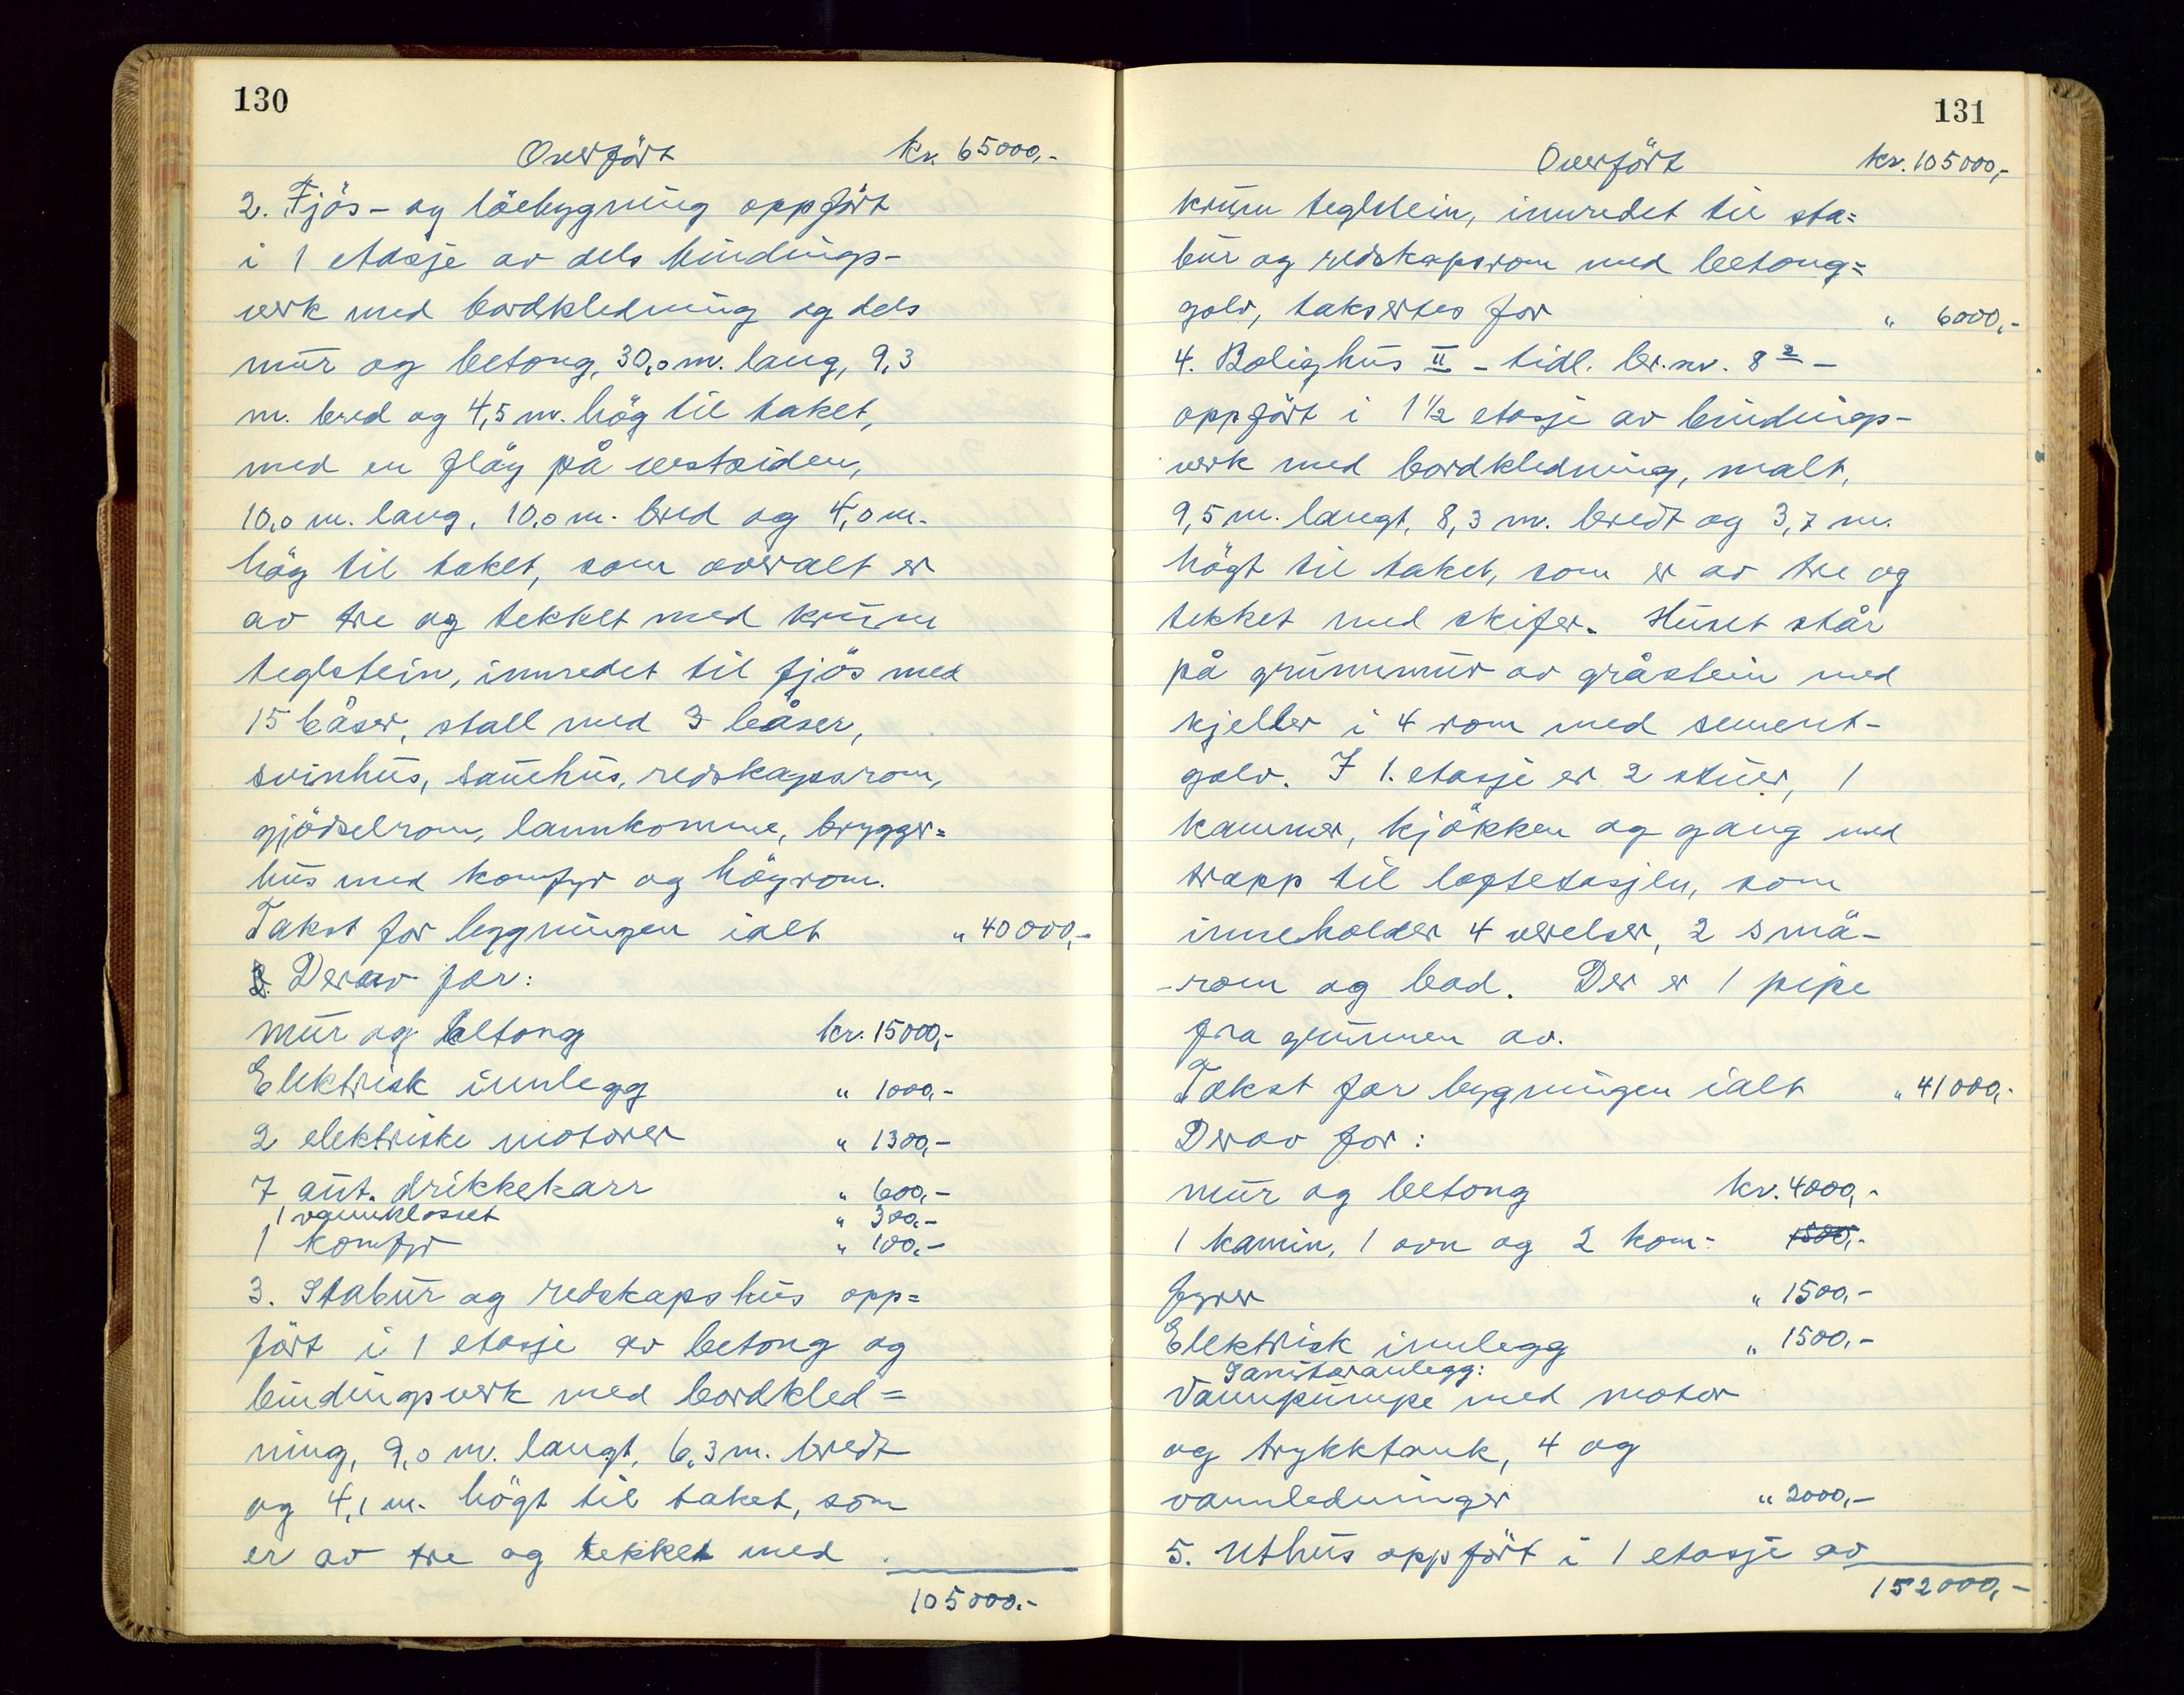 130
Overfört kr. 65000,-
2. Fjös- og löebygning oppfört
i 1 etasje av dels bindings-
verk med bordkledning og dels
mur og betong, 30,0 m. lang, 9,3
m. bred og 4,5 m. hög til taket,
med en flöy på vestsiden,
10,0 m. lang, 10,0 m. bred og 4,0 m.
hög til taket, som overalt er
av tre og tekket med krum
teglstein, innredet til fjös med
15 båser, stall med 3 båser,
svinhus, sauehus, redskapsrom,
gjödselrom, lannkomme, brygger=
hus med komfyr og höyrom.
Takst for bygningen ialt " 40000,-
Derav for:
mur og betong kr. 15000,-
Elektrisk innlegg " 1000,-
2 elektriske motorer " 1300,-
7 aut. drikkekarr " 600,-
1 vannklosset " 300,-
1 komfyr " 100,-
3. Stabur og redskapshus opp=
fört i 1 etasje av betong og
bindingsverk med bordkled=
ning, 9,0 m. langt, 6,3 m. bredt
og 4,1 m. högt til taket, som
er av tre og tekket med
105000.-
131
Overfört kr. 105000,-
krum teglstein, innredet til sta=
bur og redskapsrom med betong=
golv, taksertes for " 6000,-
4. Bolighus II - tidl. br.nr. 8² -
oppfört i 1 1/2 etasje av bindings-
verk med bordkledning, malt,
9,5 m. langt, 8,3 m. bredt og 3,7 m.
högt til taket, som er av tre og
tekket med skifer. Huset står
på grunnmur av gråstein med
kjeller i 4 rom med sement-
golv. I 1. etasje er 2 stuer, 1
kammer, kjökken og gang med
trapp til loftsetasjen, som
inneholder 4 værelser, 2 små-
-rom og bad. Der er 1 pipe
fra grunnen av.
Takst for bygningen ialt " 41000,-
Derav for:
mur og betong kr. 4000,-
1 kamin, 1 ovn og 2 kom- 1500,-
fyrer " 1500,-
Elektrisk innlegg " 1500,-
Sanitæranlegg:
Vannpumpe med motor
og trykktank, 4 og
vannledninger " 2000,-
5. Uthus oppfört i 1 etasje av
152000,-